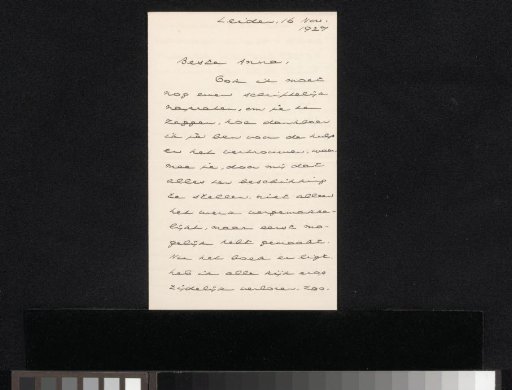 Leiden, 16 Nov.
1927
Beste Anna,
Ook ik moet
nog even schriftelijk
napraten, om je te
zeggen, hoe dankbaar
ik je ben voor de hulp
en het vertrouwen, waar-
mee je, door mij dat
alles ter beschikking
te stellen, niet alleen
het werk vergemakke-
lijkt, maar eerst mo-
gelijk hebt gemaakt.
Nu het boek er ligt,
heb ik alle kijk erop
tijdelijk verloren. Zoo-